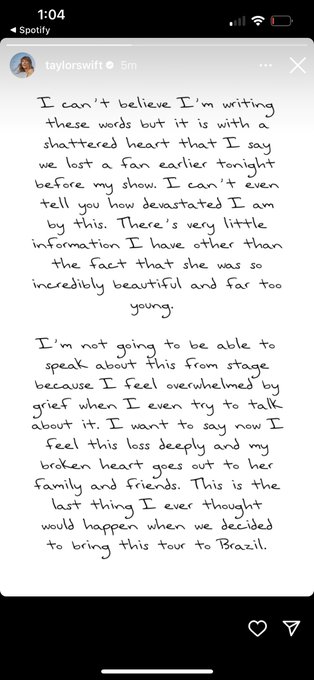 1:04
◀ Spotify
taylorswift 5m
I can't believe I'm writing
these words but it is with a
shattered heart that I say
we lost a fan earlier tonight
before my show. I can't even
tell you how devastated I am
by this. There's very little
information I have other than
the fact that she was so
incredibly beautiful and far too
young.
I'm not going to be able to
speak about this from stage
because I feel overwhelmed by
grief when I even try to talk
about it. I want to say now I
feel this loss deeply and my
broken heart goes out to her
family and friends. This is the
last thing I ever thought
would happen when we decided
to bring this tour to Brazil.